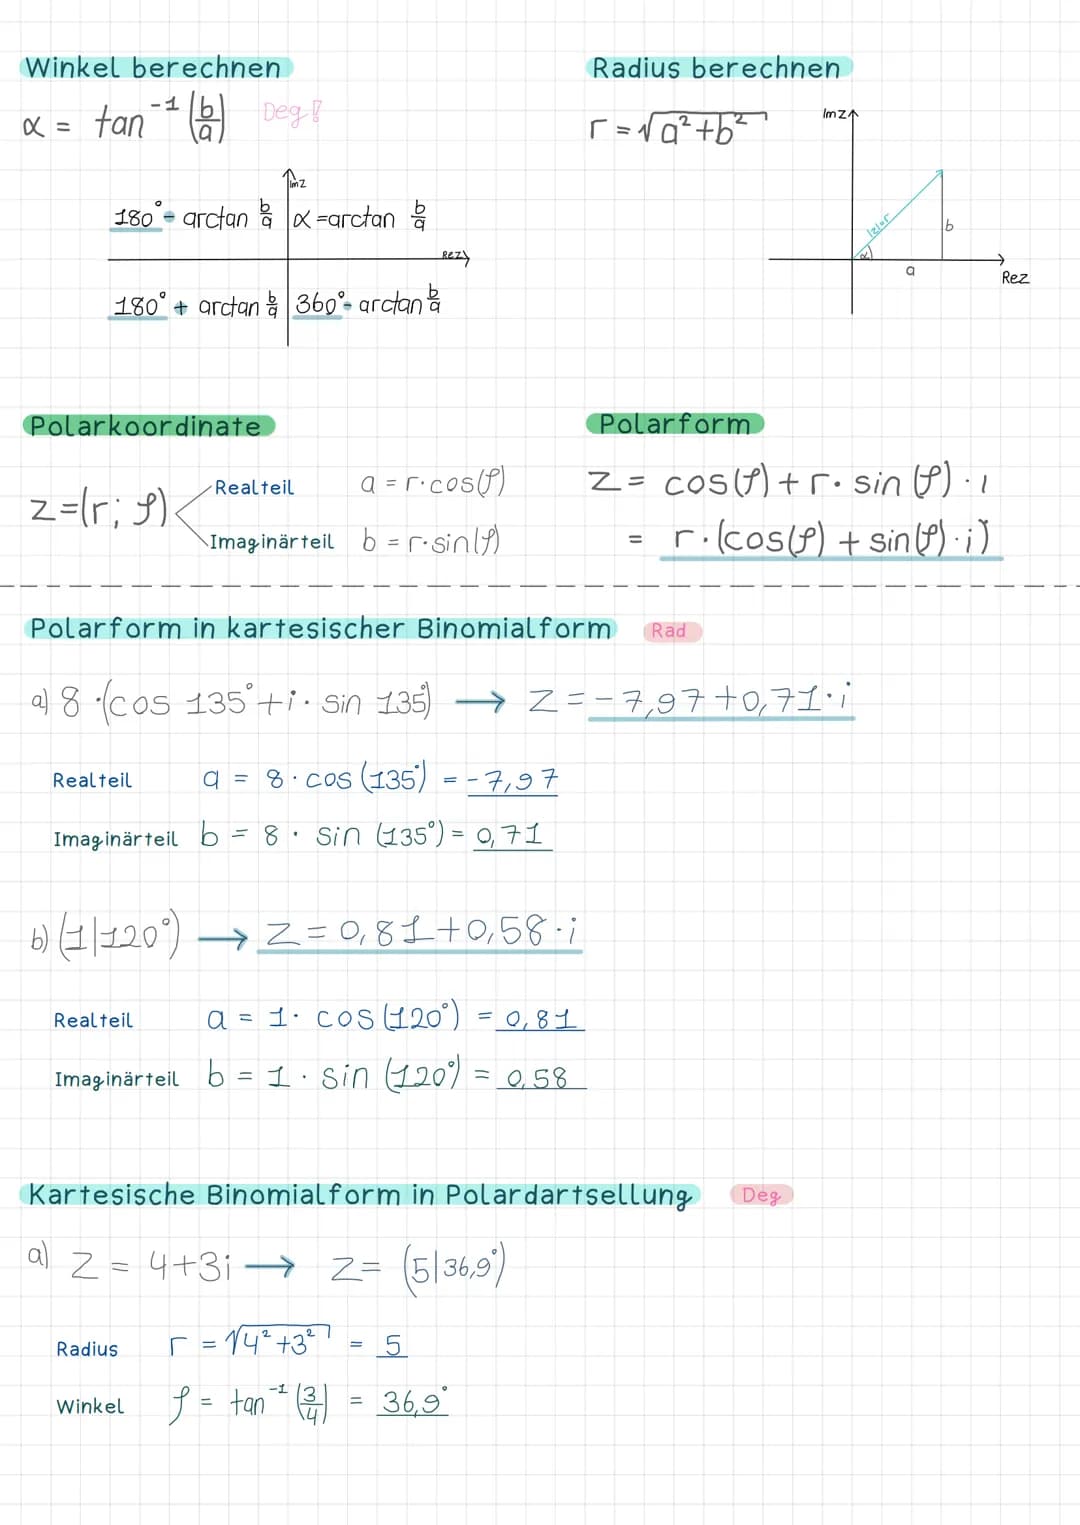 Winkel berechnen
α = tan⁻¹(b/a) Deg!
Imz
180° - arctan b/a α = arctan b/a
Rez
180° + arctan b/a 360° - arctan b/a
Radius berechnen
r = √a²+b²
Imz
|z|=r
b
α
a
Rez
Polarkoordinate
z=(r; φ)
Realteil a = r·cos(φ)
Imaginärteil b = r·sin(φ)
Polarform
z = cos(φ)+r·sin(φ)·i
= r·(cos(φ) + sin(φ)·i)
Polarform in kartesischer Binomialform Rad
a) 8·(cos 135°+i·sin 135°) → z = -7,97+0,71·i
Realteil a = 8·cos(135°) = -7,97
Imaginärteil b = 8·sin(135°) = 0,71
b) (1|120°) → z=0,81+0,58·i
Realteil a = 1·cos(120°) = 0,81
Imaginärteil b = 1·sin(120°) = 0,58
Kartesische Binomialform in Polardartsellung Deg
a) z = 4+3i → z= (5|36,9°)
Radius r = √4²+3² = 5
Winkel φ = tan⁻¹(3/4) = 36,9°